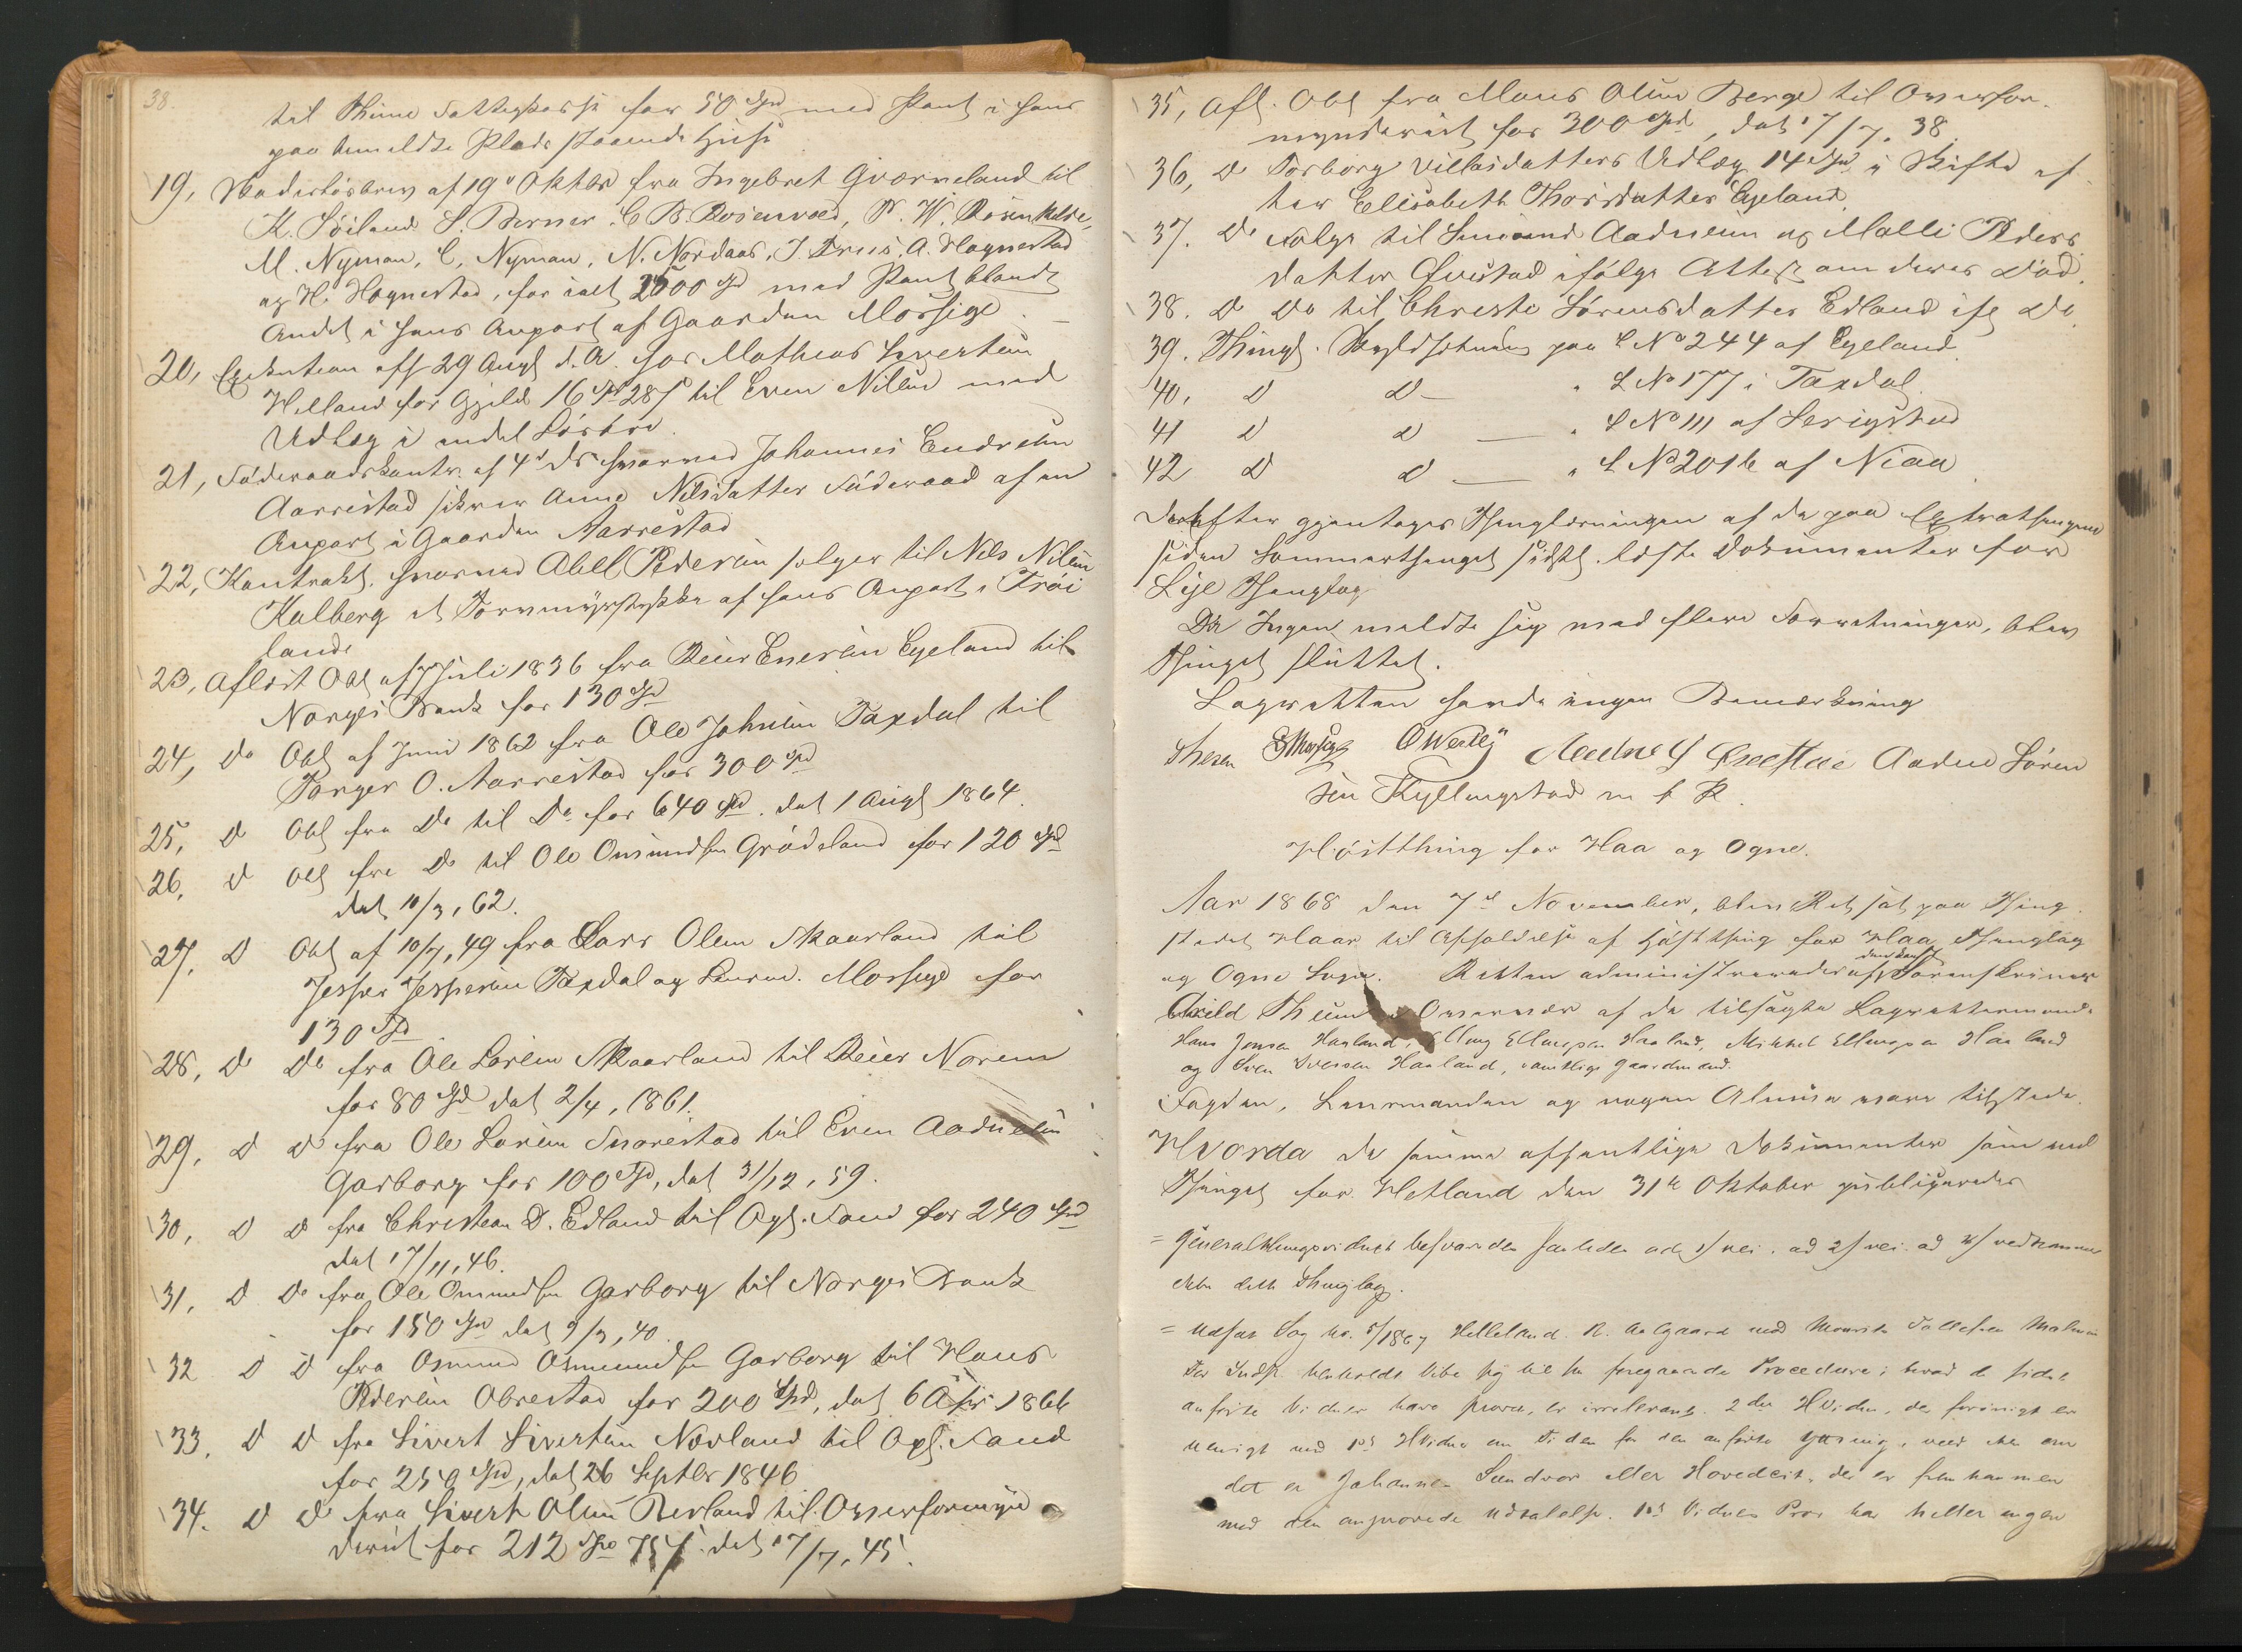 38.
til Thime Fattigkasse for 50 Spd med Pant i hans
paa bemeldte Plads staaende Huse
19, Skadesløsbrev af 19de Oktbr fra Ingebret Qværneland til
K. Søiland S. Berner. C B. Rosenvold, P. W. Rosenkilde,
M. Nyman, C. Nyman, N. Nordaas, J. Drus, A. Hognestad
og H. Hognestad, for ialt 2500 Spd med Pant blandt
Andet i hans Anpart af Gaarden Mossige. –
20, Exekution aff 29 Augt d. A. for Mathias Sivertsen
Helland for Gjeld 16 Spd 28 s til Even Nilsen med
Udlæg i endel Løsøre.
21, Føderaadskontr. af 4de ds hvorved Johannes Endresen
Aarrestad sikrer Anna Nilsdatter Føderaad af en
Anpart i Gaarden Aarrestad
22, Kontrakt. hvorved Abell Pedersen sælger til Nils Nilsen
Kalberg et Torvmyrstykke af hans Anpart i Frøi
land.
23, Aflæst Obl af Juli 1836 fra Reier Enersen Egeland til
Norges Bank for 130 Spd
24, Do Obl af Juni 1862 fra Ole Johnsen Taxdal til
Torger O. Aarrestad for 300 Spd
25, D Obl fra Do til Do for 640 Spd. dat 1 Augt 1864.
26, D Obl fra Do til Ole Omundsen Grødeland for 120 Spd
dat 10/3, 62.
27, D Obl af 10/7, 49 fra Lars Olsen Skaarland til
Jesper Jespersen Taxdal og Mossige for
130 Spd
28, Do Do fra Ole Larsen Skaarland til Reier Norem
for 80 Spd dat 2/4, 1861.
29, D D fra Ole Larsen Snarestad til Even Aadnesen
Garborg for 100 Spd, dat 31/12, 59.
30, D D fra Christian D. Edland til Opl. Fond for 240 Spd
dat 17/11, 46.
31, D Do fra Ole Omundsen Garborg til Norges Bank
for 150 Spd dat 9/3, 40.
32 D D fra Osmund Osmundsen Garborg til Hans
Pedersen Obrestad for 200 Spd, dat 6 Apr 1866
33, D D fra Sivert Sivertsen Norland til Opl. Fond
for 250 Spd, dat 26 Septbr 1846
34. D D fra Sivert Olsen Berland til Overformyn
deriet for 212 Spd 75 s. dat 17/7, 45.
35, Afl. Obl fra Mons Olsen Berge til Overfor-
mynderiet for 300 Spd, dat 17/7. 38.
36, D Torborg Villasdatters Udlæg 14 Spd i Skifte ef-
ter Elisabeth Thorsdatter Egeland.
37. Do Følge til Aadnesen og Malli Peders
datter Qvestad ifølge Attest om deres Død.
38. D Do til Christi Sørensdatter Edland ifg Do.
39. Thingl. Skyldsetning paa L No 244 af Egeland.
40, D D – " L No 177 i Taxdal.
41 D D — " L No 111 af Serigstad
42 D D — " L No 201b af Niaa.
Derefter gjentoges Thinglæsningen af de paa Extrathingene
siden Sommerthinget sidst. læste Dokumenter for
Lye Thinglag
Da Ingen meldte sig med flere Forretninger, blev
Thinget sluttet.
Lagretten havde ingen Bemærkning
Aadne Søren
sen Kyllingstad m f P.
Høstthing for Haa og Ogne.
Aar 1868 den 7de November, blev Ret sat paa Thing-
stedet Haar til Afholdelse af Høstthing for Haa Thinglag
og Ogne Sogn. Retten administreredes af den konst. Sorenskriver
Axild Thiim i Overvær af de tilsagte Lagrettesmænd:
Hans Jonsen Haaland, Elling Ellingsen Haaland, Mikkel Ellingsen Haaland
og Sven Svensen Haaland, samtlige Gaardmænd.
Fogden, Lensmanden og nogen Almue vare tilstede.
Hvorda de samme offentlige Dokumenter som ved
Thinget for Hetland den 31te Oktober publiceredes
= Generalthingsvidnet besvaredes saaledes ad 1/ nei. ad 2/ nei. ad 3/ vedkommer
ikke dette Thinglag.
= Udsat Sag No. 5/1867 Helleland. R. Aalgaard mod
foregaaende Procedure; hvad de sidst
anførte Vidner have prover, er irrelevant. 2det Hvidne, der forøvrigt er
uenigt med 1ste Hvidne om Tiden for den anførte Ytring, veed ikke om
det er Johannes eller der er fremkommen
med den anprovede Udtalelse. 1ste Vidnes Prov har heller ingen